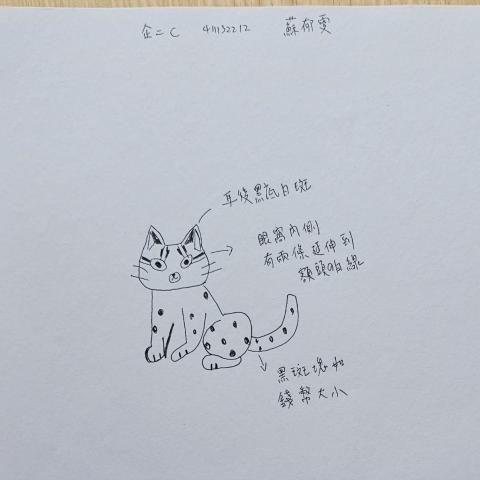 企二C 411132212 蘇郁雯
耳後黑底白斑
眼窩內側
有兩條延伸到
額頭白線
黑斑塊如
錢幣大小